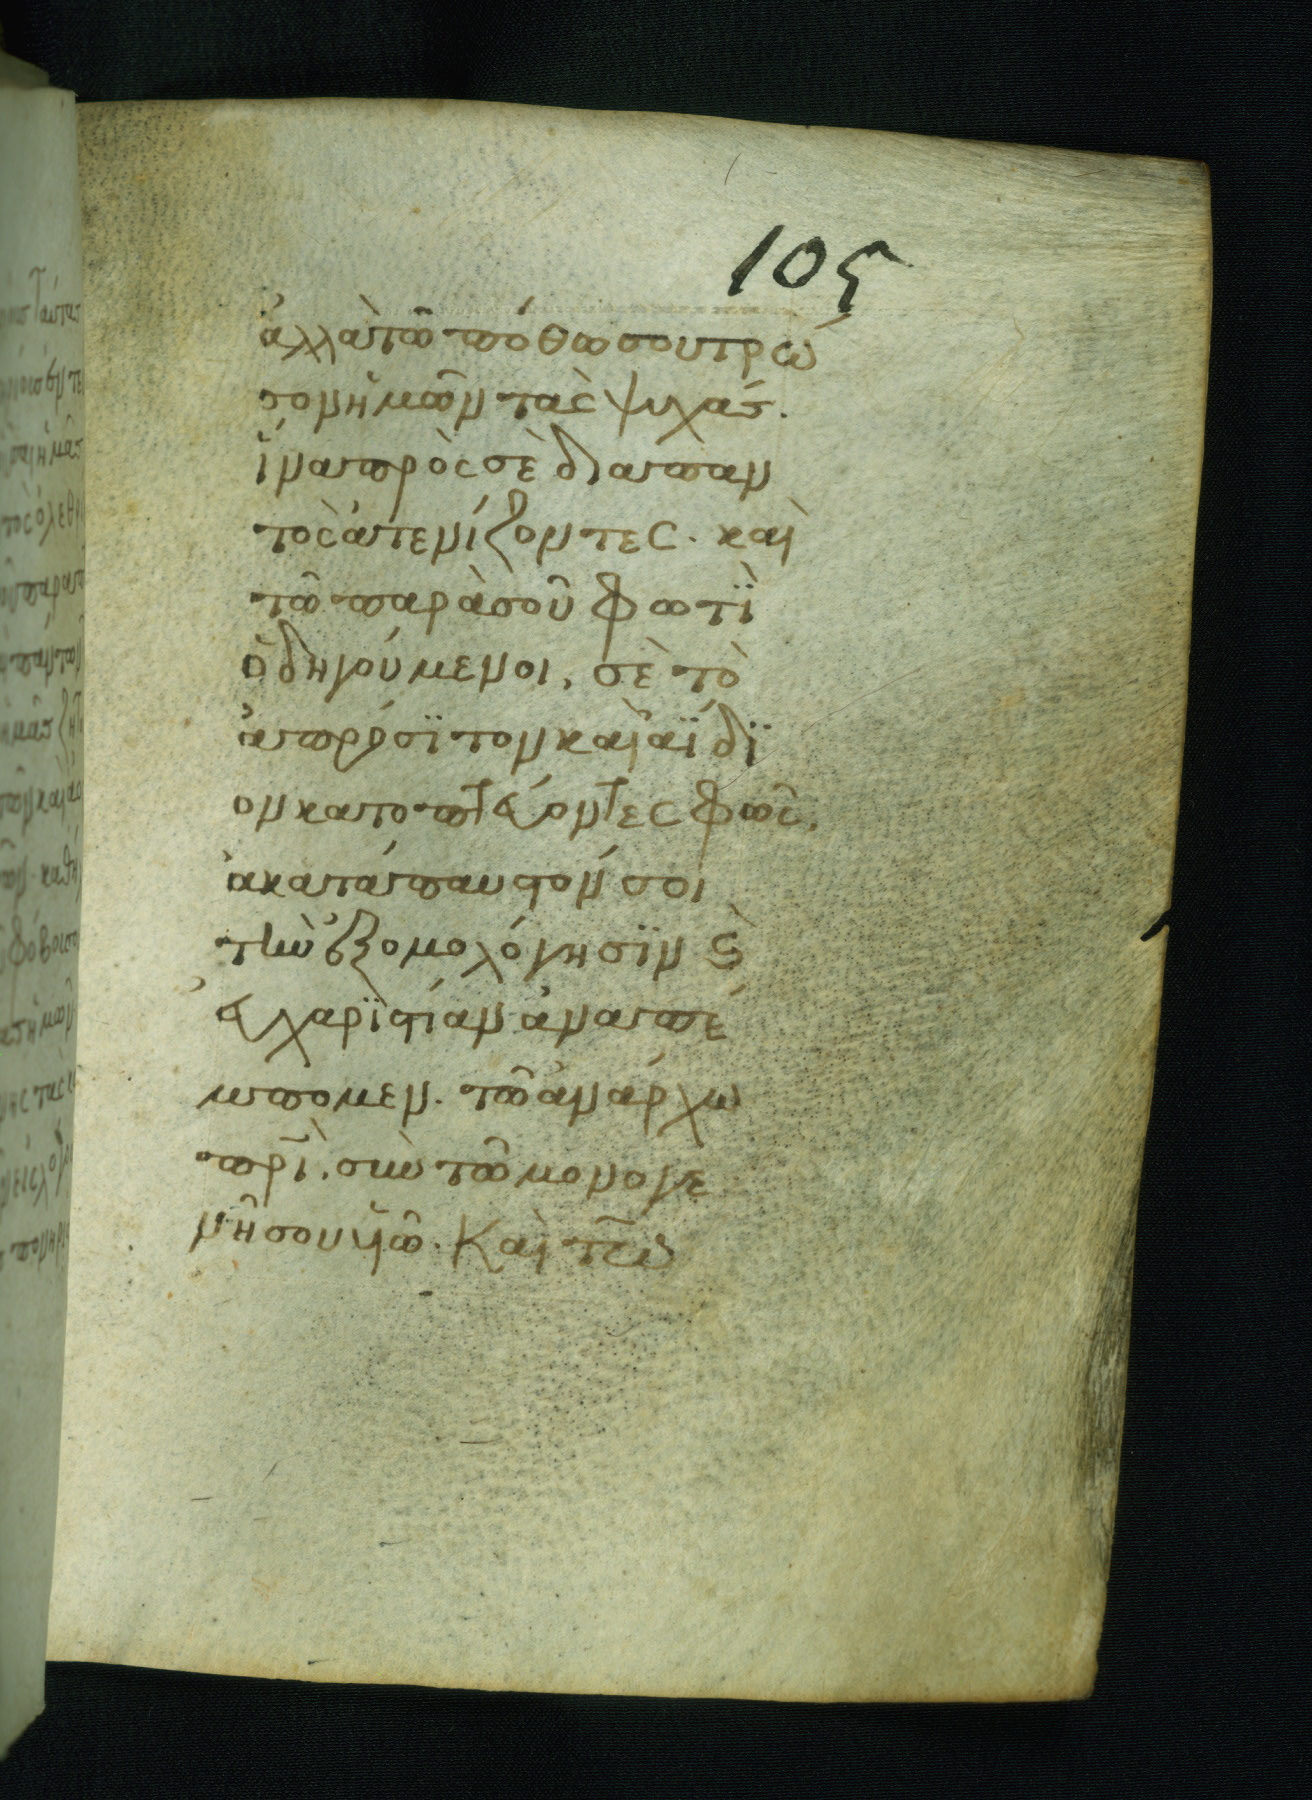 105
ἀλλὰ τῶ πόθω σου τρώ
σον ἡμῶν τὰς ψυχάς.
ἵνα πρὸς σὲ διαπαν
τὸς ἀτενίζοντες. καὶ
τῶ παρὰ σοῦ φωτῒ
ὁδηγούμενοι, σὲ τὸ
ἀπρόσϊτον καὶ ἀΐδϊ
ον κατοπτεύοντες φῶς,
ἀκατάπαυστόν σοι
τὴν ἐξομολόγησϊν ϗ
εὐχαρϊστίαν ἀναπέ
μπομεν. τῶ ἀνάρχω
πρ̅ὶ, σὺν τῶ μονογε
νῆ σου υἱῶ. Καὶ τῶ